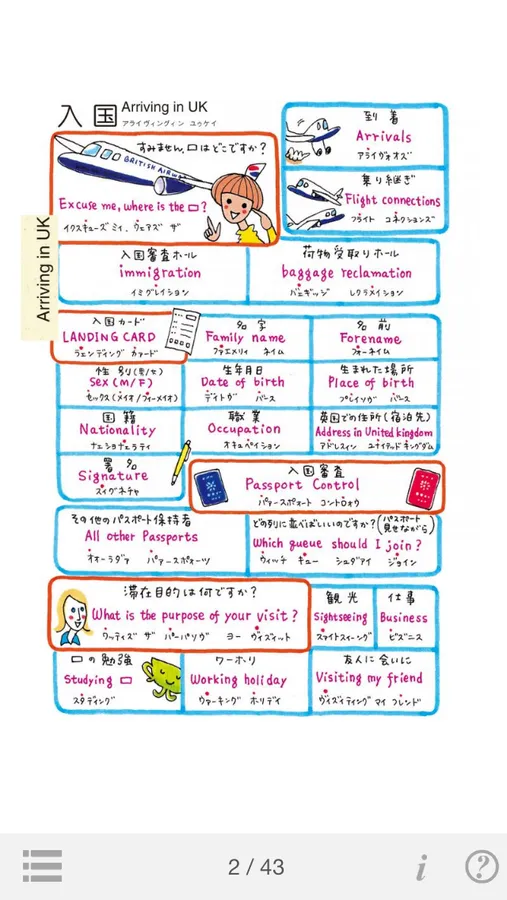 入国 Arriving in UK
アライヴィングイン ユゥケイ
すみません、□はどこですか?
BRITISH AIRWAYS
Excuse me, where is the □?
イクスキューズ ミィ、ウェアズ ザ
到着
Arrivals
アライヴォオズ
乗り継ぎ
Flight connections
フライト コネクションズ
Arriving in UK
入国審査ホール
immigration
イミグレイション
荷物受取りホール
baggage reclamation
バェギッジ レクラメイション
入国カード
LANDING CARD
ラェンディング カァード
名字
Family name
ファエメリィ ネイム
名前
Forename
フォーネイム
性別(男/女)
Sex (M/F)
セックス(メイオ/フィーメイオ)
生年月日
Date of birth
デイトヴ バース
生まれた場所
Place of birth
プレイソヴ バース
国籍
Nationality
ナェショナェラティ
職業
Occupation
オキュペイション
英国での住所(宿泊先)
Address in United kingdom
アドレスィン ユナイテッド キングダム
署名
Signature
スィグネチャ
入国審査
Passport Control
パァースポォート コントロォウ
その他のパスポート保持者
All other Passports
オオーラダァ パァースポォーツ
どの列に並べばいいのですか?(パスポート見せながら)
Which queue should I join?
ウィッチ キュー シュダアイ ジョイン
滞在目的は何ですか?
What is the purpose of your visit?
ワッティズ ザ パーパソヴ ヨー ヴィズィット
観光
Sightseeing
サイトスィーイング
仕事
Business
ビズニス
□の勉強
Studying □
スタディング
ワーホリ
Working holiday
ワァーキング ホリデイ
友人に会いに
Visiting my friend
ヴィズィティング マイ フレンド
2 / 43
i
?